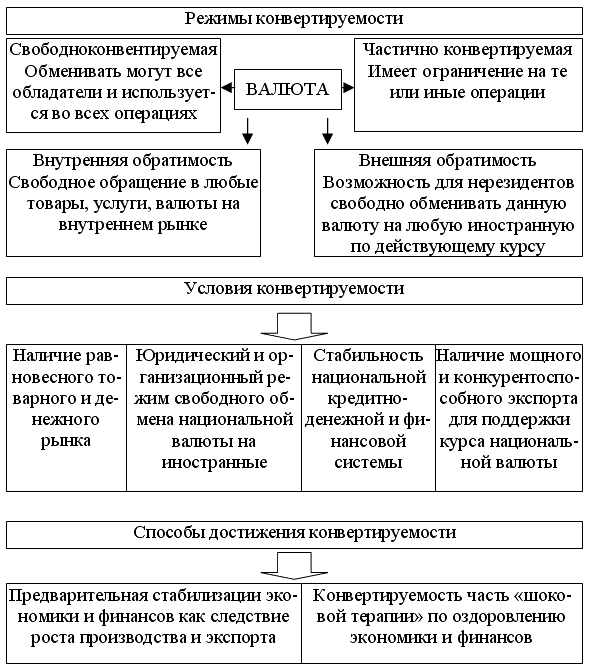 Режимы конвертируемости
Свободноконвентируемая
Обменивать могут все
обладатели и использует-
ся во всех операциях
ВАЛЮТА
Частично конвертируемая
Имеет ограничение на те
или иные операции
Внутренняя обратимость
Свободное обращение в любые
товары, услуги, валюты на
внутреннем рынке
Внешняя обратимость
Возможность для нерезидентов
свободно обменивать данную
валюту на любую иностранную
по действующему курсу
Условия конвертируемости
Наличие рав-
новесного то-
варного и де-
нежного
рынка
Юридический и ор-
ганизационный ре-
жим свободного об-
мена национальной
валюты на
иностранные
Стабильность
национальной
кредитно-
денежной и фи-
нансовой
системы
Наличие мощного
и конкурентоспо-
собного экспорта
для поддержки
курса националь-
ной валюты
Способы достижения конвертируемости
Предварительная стабилизации эко-
номики и финансов как следствие
роста производства и экспорта
Конвертируемость часть «шоко-
вой терапии» по оздоровлению
экономики и финансов